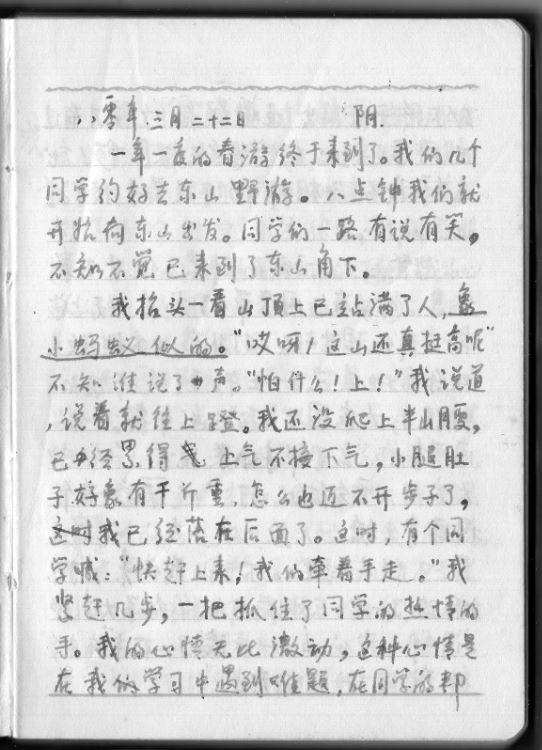 八零年.三月二十二日 阴.
一年一度的春游终于来到了。我们几个
同学约好去东山野游。八点钟我们就
开始向东山出发。同学们一路有说有笑。
不知不觉已来到了东山角下。
我抬头一看山顶上已站满了人,象
小蚂蚁似的。“哎呀!这山还真挺高呢”
不知谁说了声。“怕什么!上!”我说道
,说着就往上蹬。我还没爬上半山腰,
已经累得上气不接下气,小腿肚
子好象有千斤重,怎么也迈不开步子了,
我已经落在后面了。这时,有个同
学喊:“快赶上来!我们牵着手走。”我
紧赶几步,一把抓住了同学的热情的
手。我的心情无比激动,这种心情是
在我们学习中遇到难题,在同学的帮